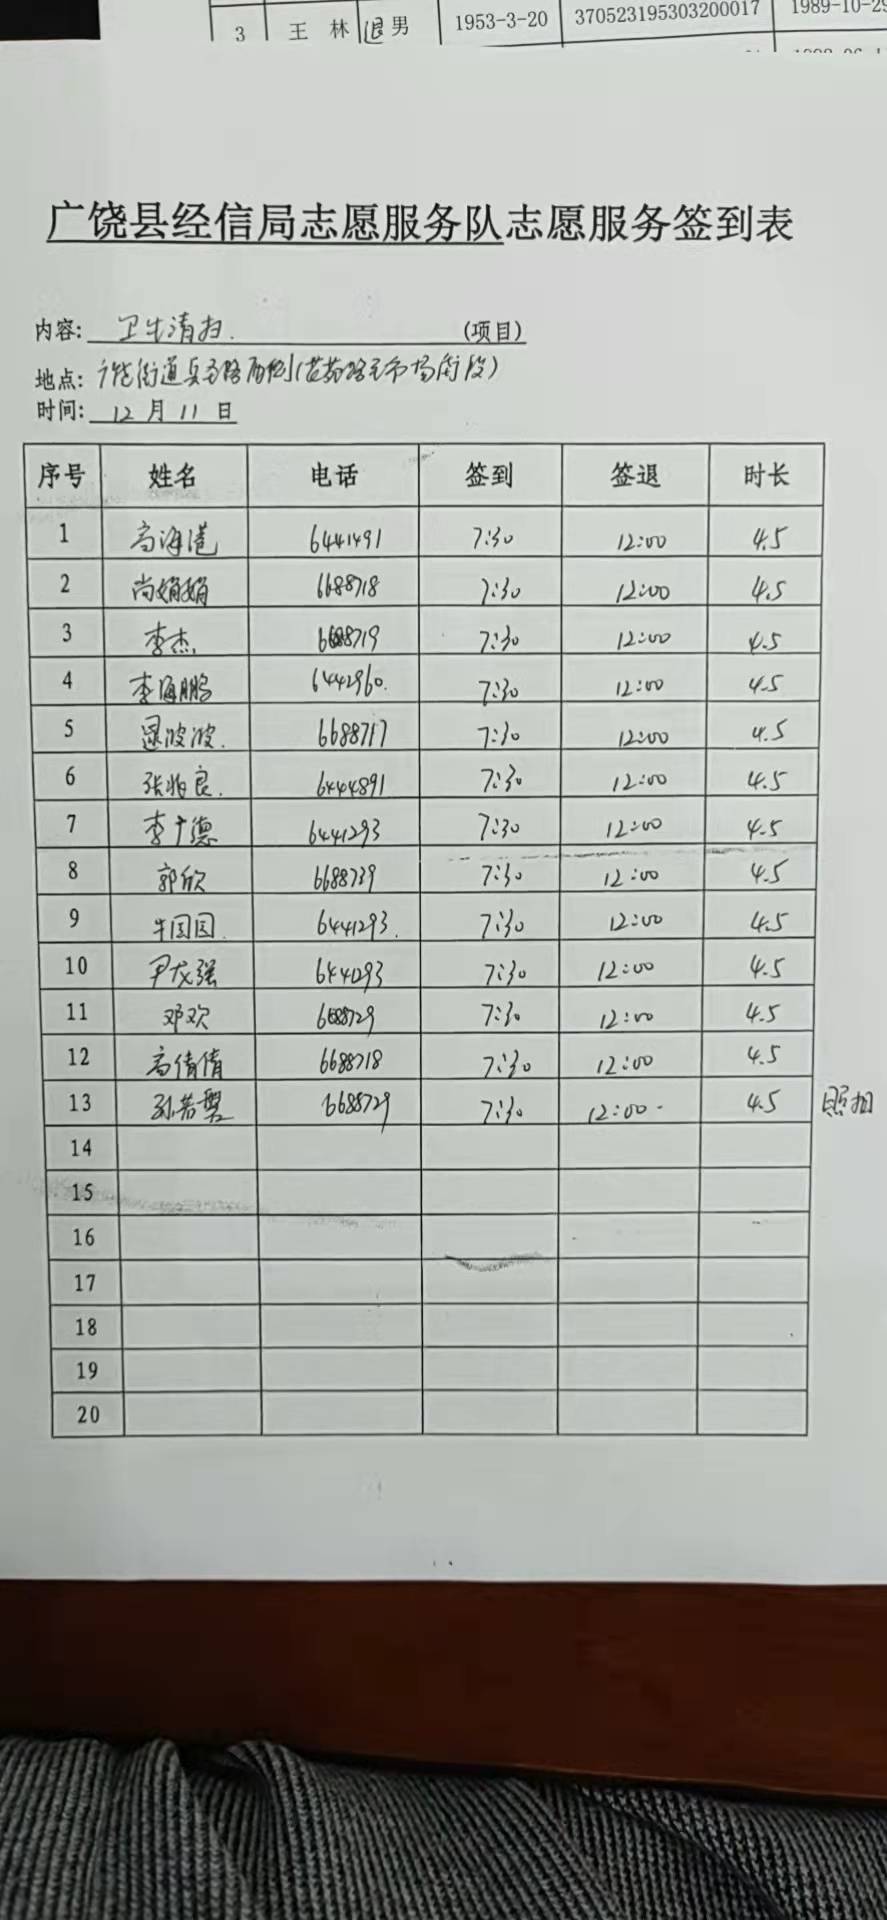 3 王 林 退 男 1953-3-20 370523195303200017 1989-10-29
广饶县经信局志愿服务队志愿服务签到表
内容: 卫生清扫. (项目)
地点: 广饶街道兵圣路西侧(花苑路至市场街段)
时间: 12月11日
序号 姓名 电话 签到 签退 时长
1 高海港 6441491 7:30 12:00 4.5
2 尚娟娟 6688718 7:30 12:00 4.5
3 李杰 6688719 7:30 12:00 4.5
4 李海鹏 6442960. 7:30 12:00 4.5
5 逯波波. 6688717 7:30 12:00 4.5
6 张兆良. 6444891 7:30 12:00 4.5
7 李广德 6441293 7:30 12:00 4.5
8 郭欣 6688739 7:30 12:00 4.5
9 牛园园. 6441293. 7:30 12:00 4.5
10 尹龙强 7:30 12:00 4.5
11 邓欢 6688729 7:30 12:00 4.5
12 高倩倩 6688718 7:30 12:00 4.5
13 6688729 7:30 12:00 4.5 照相
14
15
16
17
18
19
20